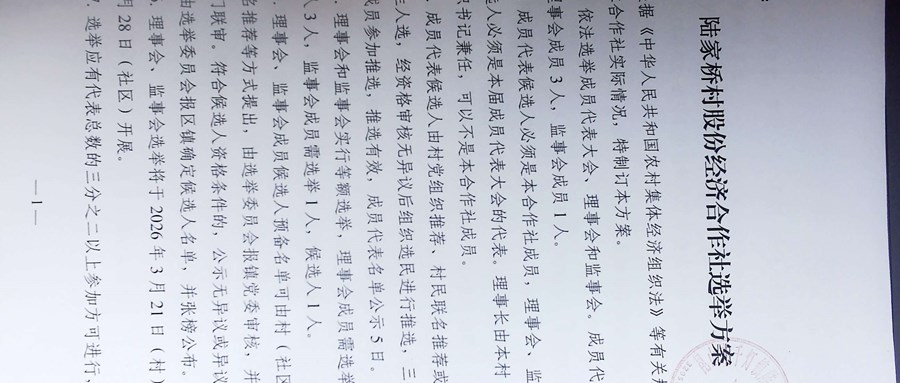 陆家桥村股份经济合作社选举方案
据《中华人民共和国农村集体经济组织法》等有关
合作社实际情况，特制订本方案。
依法选举成员代表大会、理事会和监事会。成员代
事会成员 3 人，监事会成员 1 人。
成员代表候选人必须是本合作社成员，理事会、监
人必须是本届成员代表大会的代表。理事长由本村
书记兼任，可以不是本合作社成员。
成员代表候选人由村党组织推荐、村民联名推荐或
人选，经资格审核无异议后组织选民进行推选，三
员参加推选，推选有效，成员代表名单公示 5 日。
理事会和监事会实行等额选举，理事会成员需选举
人 3 人，监事会成员需选举 1 人，候选人 1 人。
理事会、监事会成员候选人预备名单可由村（社区
名推荐等方式提出，由选举委员会报镇党委审核，并
门联审。符合候选人资格条件的，公示无异议或异议
由选举委员会报区镇确定候选人名单，并张榜公布。
理事会、监事会选举将于 2026 年 3 月 21 日（村）
月 28 日（社区）开展。
选举应有代表总数的三分之二以上参加方可进行，
— 1 —